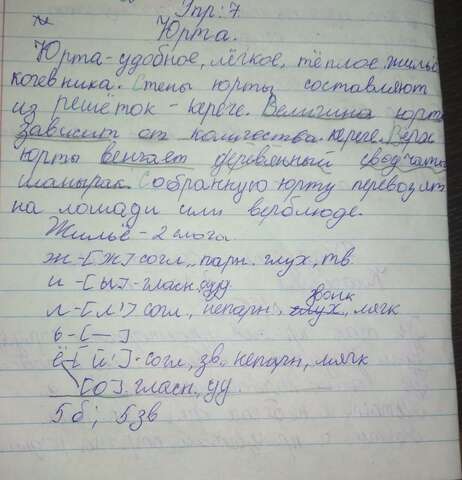 Упр: 7.
Юрта.
Юрта - удобное, лёгкое, тёплое жильё
кочевника. Стены юрты составляют
из решеток - кереге. Величина юрт
зависит от количества кереге. Верх
юрты венчает деревянный сводчаты
шанырак. Собранную юрту перевозят
на лошади или верблюде.
Жильё - 2 слога.
ж - [ж] согл, парн. глух, тв.
и - [ы] - гласн, уд
л - [л'] согл, непарн, звонк, мягк
ь - [—]
ё [й'] - согл, зв, непарн, мягк
[о] гласн, уд
5 б; 5 зв